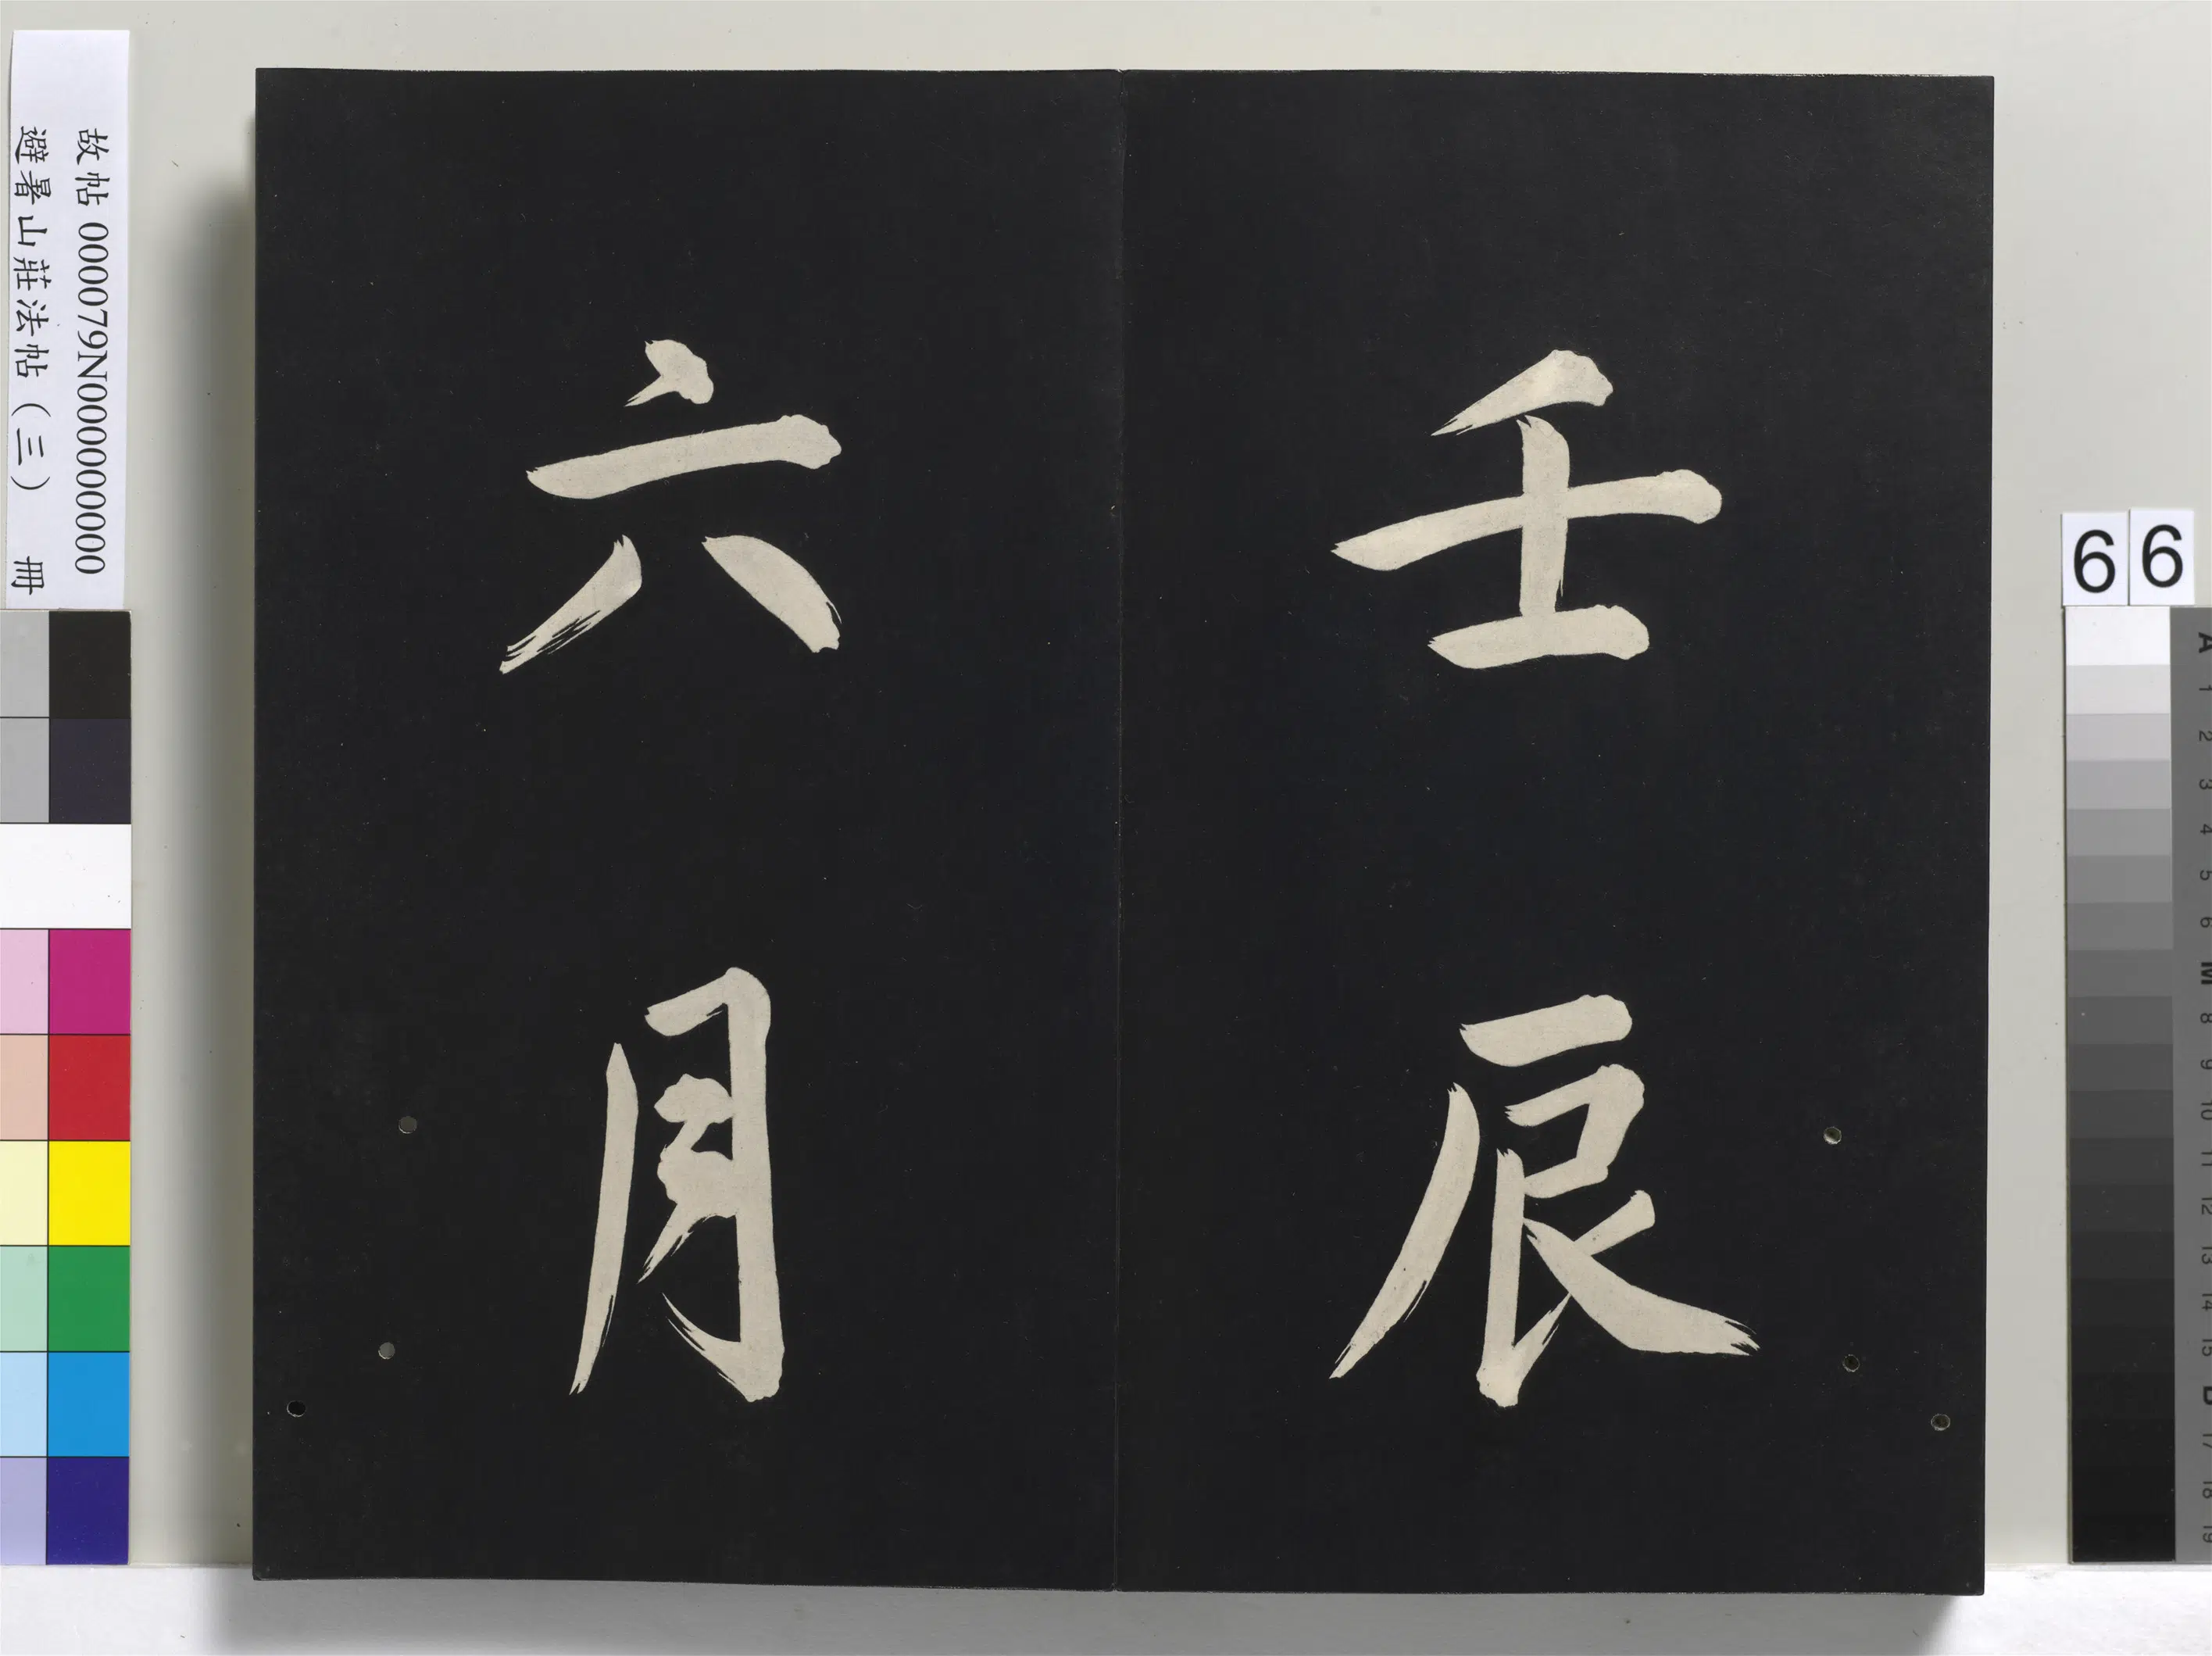 壬辰
六月
故帖 000079N000000000
避暑山莊法帖（三） 冊
66
A
1
2
3
4
5
6
M
8
9
10
11
12
13
14
15
B
17
18
19